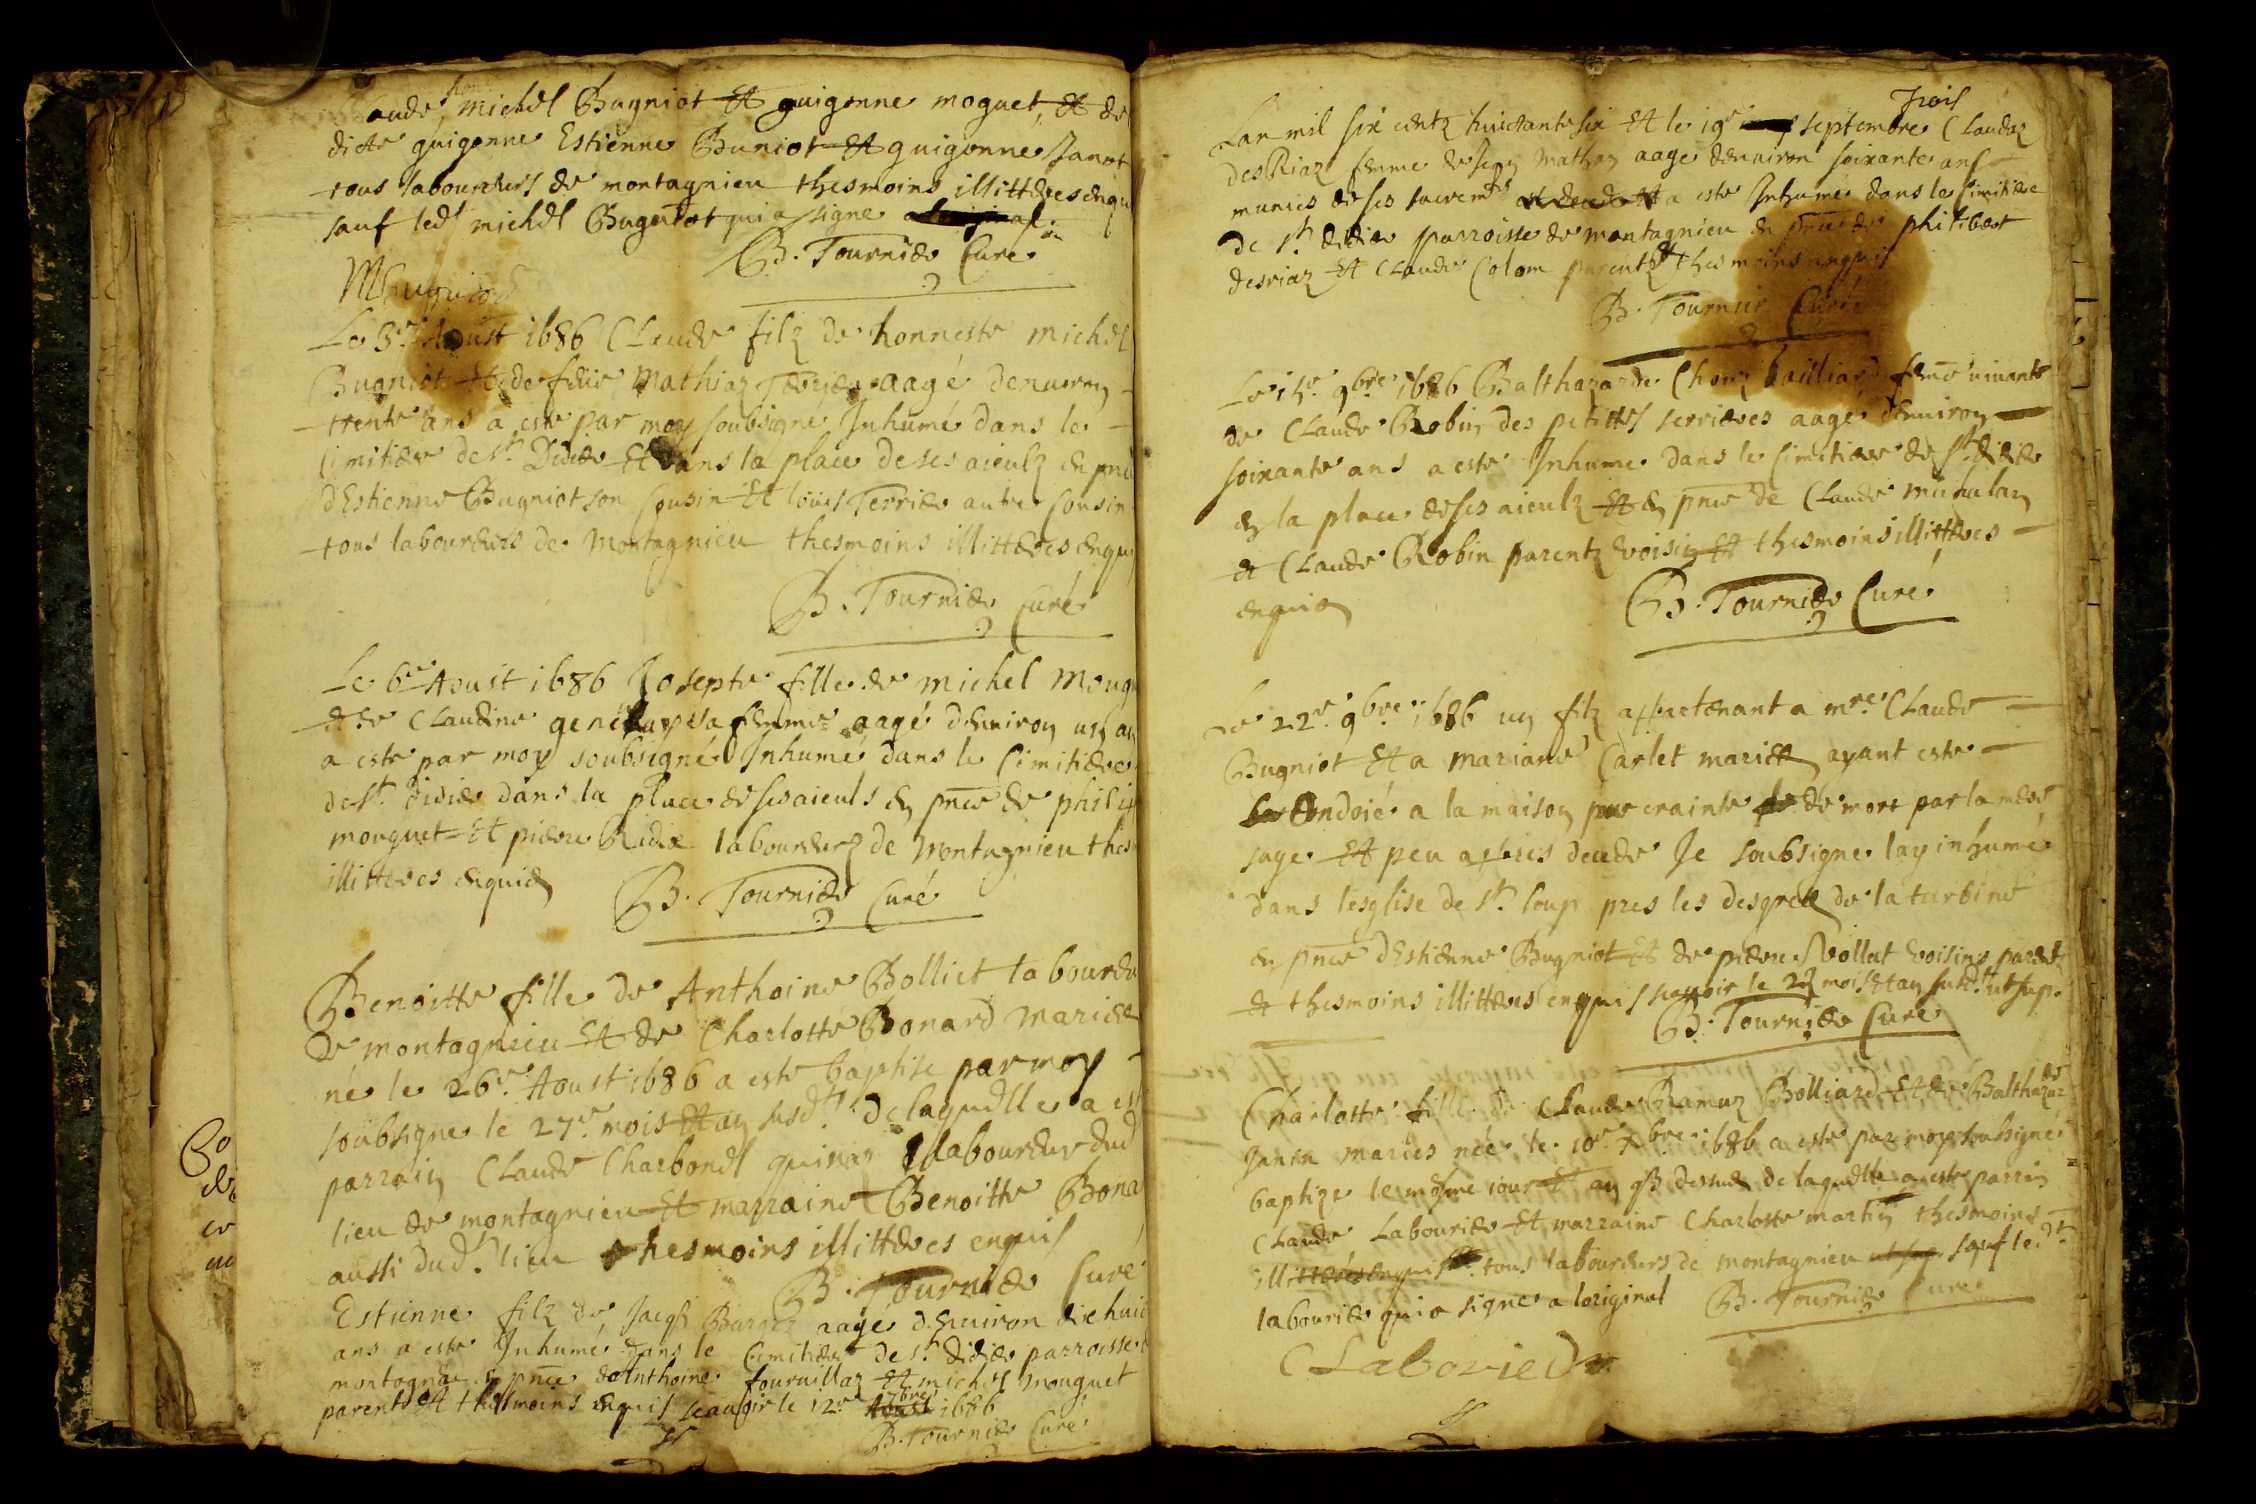 aude michel Bugniot Et guigonne moguet, Et de
dicte guigonne Estienne Buniot Et guigonne Janot
tous laboureurs de montagnieu thesmoins illitteres enqu
sauf led michel Bugniot qui a signe
B. Tournier Curé
Le 3e Aoust 1686 Claude filz de honneste michel
Bugniot Et de feue Mathiaz aagé denviron
trente ans a este par moy soubsigne Inhumé dans le
cimitiere de st Didier Et dans la place de ses aieulz en pnce
dEstienne Bugniot son Cousin Et louis Terrier autre Cousin
tous laboureurs de Montagnieu thesmoins illitteres enqui
B. Tournier Curé
Le 6e Aoust 1686 Josepte fille de michel Moug
et de Claudine sa femme aagé denviron un an
a este par moy soubsigné Inhumé dans le Cimitiere
de st didier dans la place de ses aieuls en pnce de philip
mouguet Et pierre Ridie laboureurs de Montagnieu thes
illitteres enquis
B. Tournier Curé
Benoitte fille de Anthoine Bolliet laboureu
de montagnieu Et de Charlotte Bonard Mariee
né le 26e Aoust 1686 a este baptise par moy
soubsigne le 27e mois Et an susdt. de laquelle a est
parrain Claude Charbonel laboureur dud
lieu de montagnieu Et marraine Benoitte Bona
aussi dudt lieu thesmoins illitteres enquis
B. Tournier Curé
Estienne filz de Jacq aagé denviron dixhuic
ans a este Inhumé dans le Cimitiere de st didier parroisse
montagnieu en pnce dAnthoine fournillaz Et michel mouguet
parents Et thesmoins enquis scavoir le 12e 7bre Aoust 1686
B. Tournier Curé
Trois
Lan mil six centz huictante six Et le 19e septembre Claudaz
desRiaz femme de feu Mathon aage denviron soixante ans
munies de ses sacremts a este Inhumé dans le Cimitiere
de st didier parroisse de montagnieu en pnce de philibert
desriaz Et Claude Colom parentz et thesmoins enquis
B. Tournier Curé
Le 15e 9bre 1686 Balthazarde femme vivante
de Claude Robin des petittes serrieres aagé denviron
soixante ans a este Inhume dans le Cimitiere de st didier
en la place de ses aieulz Et en pnce de Claude
et Claude Robin parentz voisin Et thesmoins illitteres
enquis
B. Tournier Curé
Le 22e 9bre 1686 un filz appartenant a mre Claude
Bugniot Et a Mariane Carlet mariés ayant este
Ondoié a la maison par crainte de mort par la mere
sage Et peu apres decede Je soubsigne lay inhumé
dans lesglise de st loup pres les desgrez de la turbine
en pnce dEstienne Bugniot Et de pierre voisins parents
et thesmoins illitteres enquis scavoir le 23 mois et an susdt ut sup.
B. Tournier Curé
Charlotte fille de Claude Ramuz Bolliard Et de Balthazarde
Janin mariés née le 10e Xbre 1686 a este par moy soubsigné
baptize le mesme jour Et an de laquelle a este parrin
Claude Labourier Et marraine Charlotte martin thesmoins
illitteres enquis tous laboureurs de montagnieu sauf le dt
labourier qui a signe a loriginal
B. Tournier Curé
C Laborier